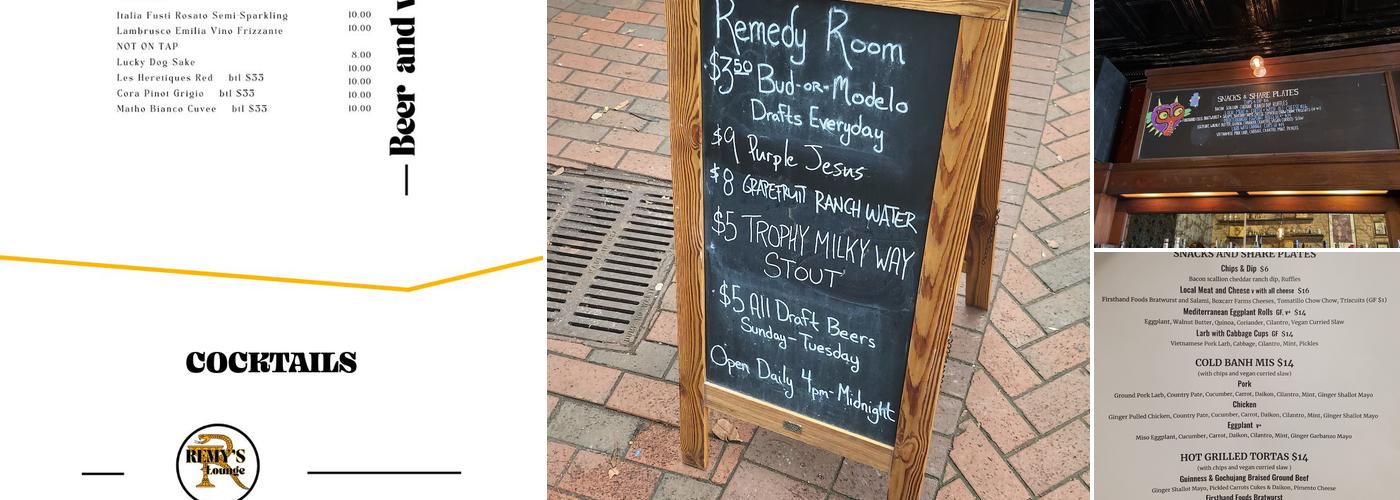 Italia Fusti Rosato Semi-Sparkling 10.00
Lambrusco Emilia Vino Frizzante 10.00
NOT ON TAP
Lucky Dog Sake 8.00
10.00
Les Heretiques Red btl $33 10.00
Cora Pinot Grigio btl $33 10.00
Matho Bianco Cuvee btl $33 10.00
Beer and
COCKTAILS
REMY'S
Lounge
Remedy Room
$3.50 Bud-OR-Modelo
Drafts Everyday
$9 Purple Jesus
$8 GRAPEFRUIT RANCH WATER
$5 TROPHY MILKY WAY
STOUT
$5 All Draft Beers
Sunday-Tuesday
Open Daily 4pm-Midnight
SNACKS & SHARE PLATES
SNACKS AND SHARE PLATES
Chips & Dip $6
Bacon scallion cheddar ranch dip, Ruffles
Local Meat and Cheese v with all cheese $16
Firsthand Foods Bratwurst and Salami, Boxcarr Farms Cheeses, Tomatillo Chow Chow, Triscuits (GF $1)
Mediterranean Eggplant Rolls GF, v* $14
Eggplant, Walnut Butter, Quinoa, Coriander, Cilantro, Vegan Curried Slaw
Larb with Cabbage Cups GF $14
Vietnamese Pork Larb, Cabbage, Cilantro, Mint, Pickles
COLD BANH MIS $14
(with chips and vegan curried slaw)
Pork
Ground Pork Larb, Country Pate, Cucumber, Carrot, Daikon, Cilantro, Mint, Ginger Shallot Mayo
Chicken
Ginger Pulled Chicken, Country Pate, Cucumber, Carrot, Daikon, Cilantro, Mint, Ginger Shallot Mayo
Eggplant v*
Miso Eggplant, Cucumber, Carrot, Daikon, Cilantro, Mint, Ginger Garbanzo Mayo
HOT GRILLED TORTAS $14
(with chips and vegan curried slaw )
Guinness & Gochujang Braised Ground Beef
Ginger Shallot Mayo, Pickled Carrots Cukes & Daikon, Pimento Cheese
Firsthand Foods Bratwurst